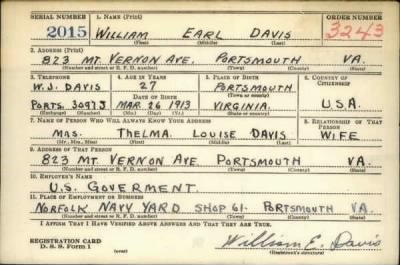 SERIAL NUMBER 1. NAME (Print) ORDER NUMBER
2015 WILLIAM EARL DAVIS 3243
(First) (Middle) (Last)
2. ADDRESS (Print)
823 MT. VERNON AVE. PORTSMOUTH VA.
(Number and street or R. F. D. number) (Town) (County) (State)
3. TELEPHONE 4. AGE IN YEARS 5. PLACE OF BIRTH 6. COUNTRY OF CITIZENSHIP
W.J. DAVIS 27 PORTSMOUTH
DATE OF BIRTH (Town or county)
PORTS. MAR. 26 1913 VIRGINIA. U.S.A.
(Exchange) (Number) (Mo.) (Day) (Yr.) (State or country)
7. NAME OF PERSON WHO WILL ALWAYS KNOW YOUR ADDRESS 8. RELATIONSHIP OF THAT PERSON
MRS. THELMA LOUISE DAVIS WIFE
(Mr., Mrs., Miss) (First) (Middle) (Last)
9. ADDRESS OF THAT PERSON
823 MT. VERNON AVE. PORTSMOUTH VA.
(Number and street or R. F. D. number) (Town) (County) (State)
10. EMPLOYER'S NAME
U.S. GOVERMENT
11. PLACE OF EMPLOYMENT OR BUSINESS
NORFOLK NAVY YARD SHOP 61. PORTSMOUTH VA.
(Number and street or R. F. D. number) (Town) (County) (State)
I AFFIRM THAT I HAVE VERIFIED ABOVE ANSWERS AND THAT THEY ARE TRUE.
REGISTRATION CARD
D. S. S. Form 1 (over) William E. Davis
(Registrant's signature)